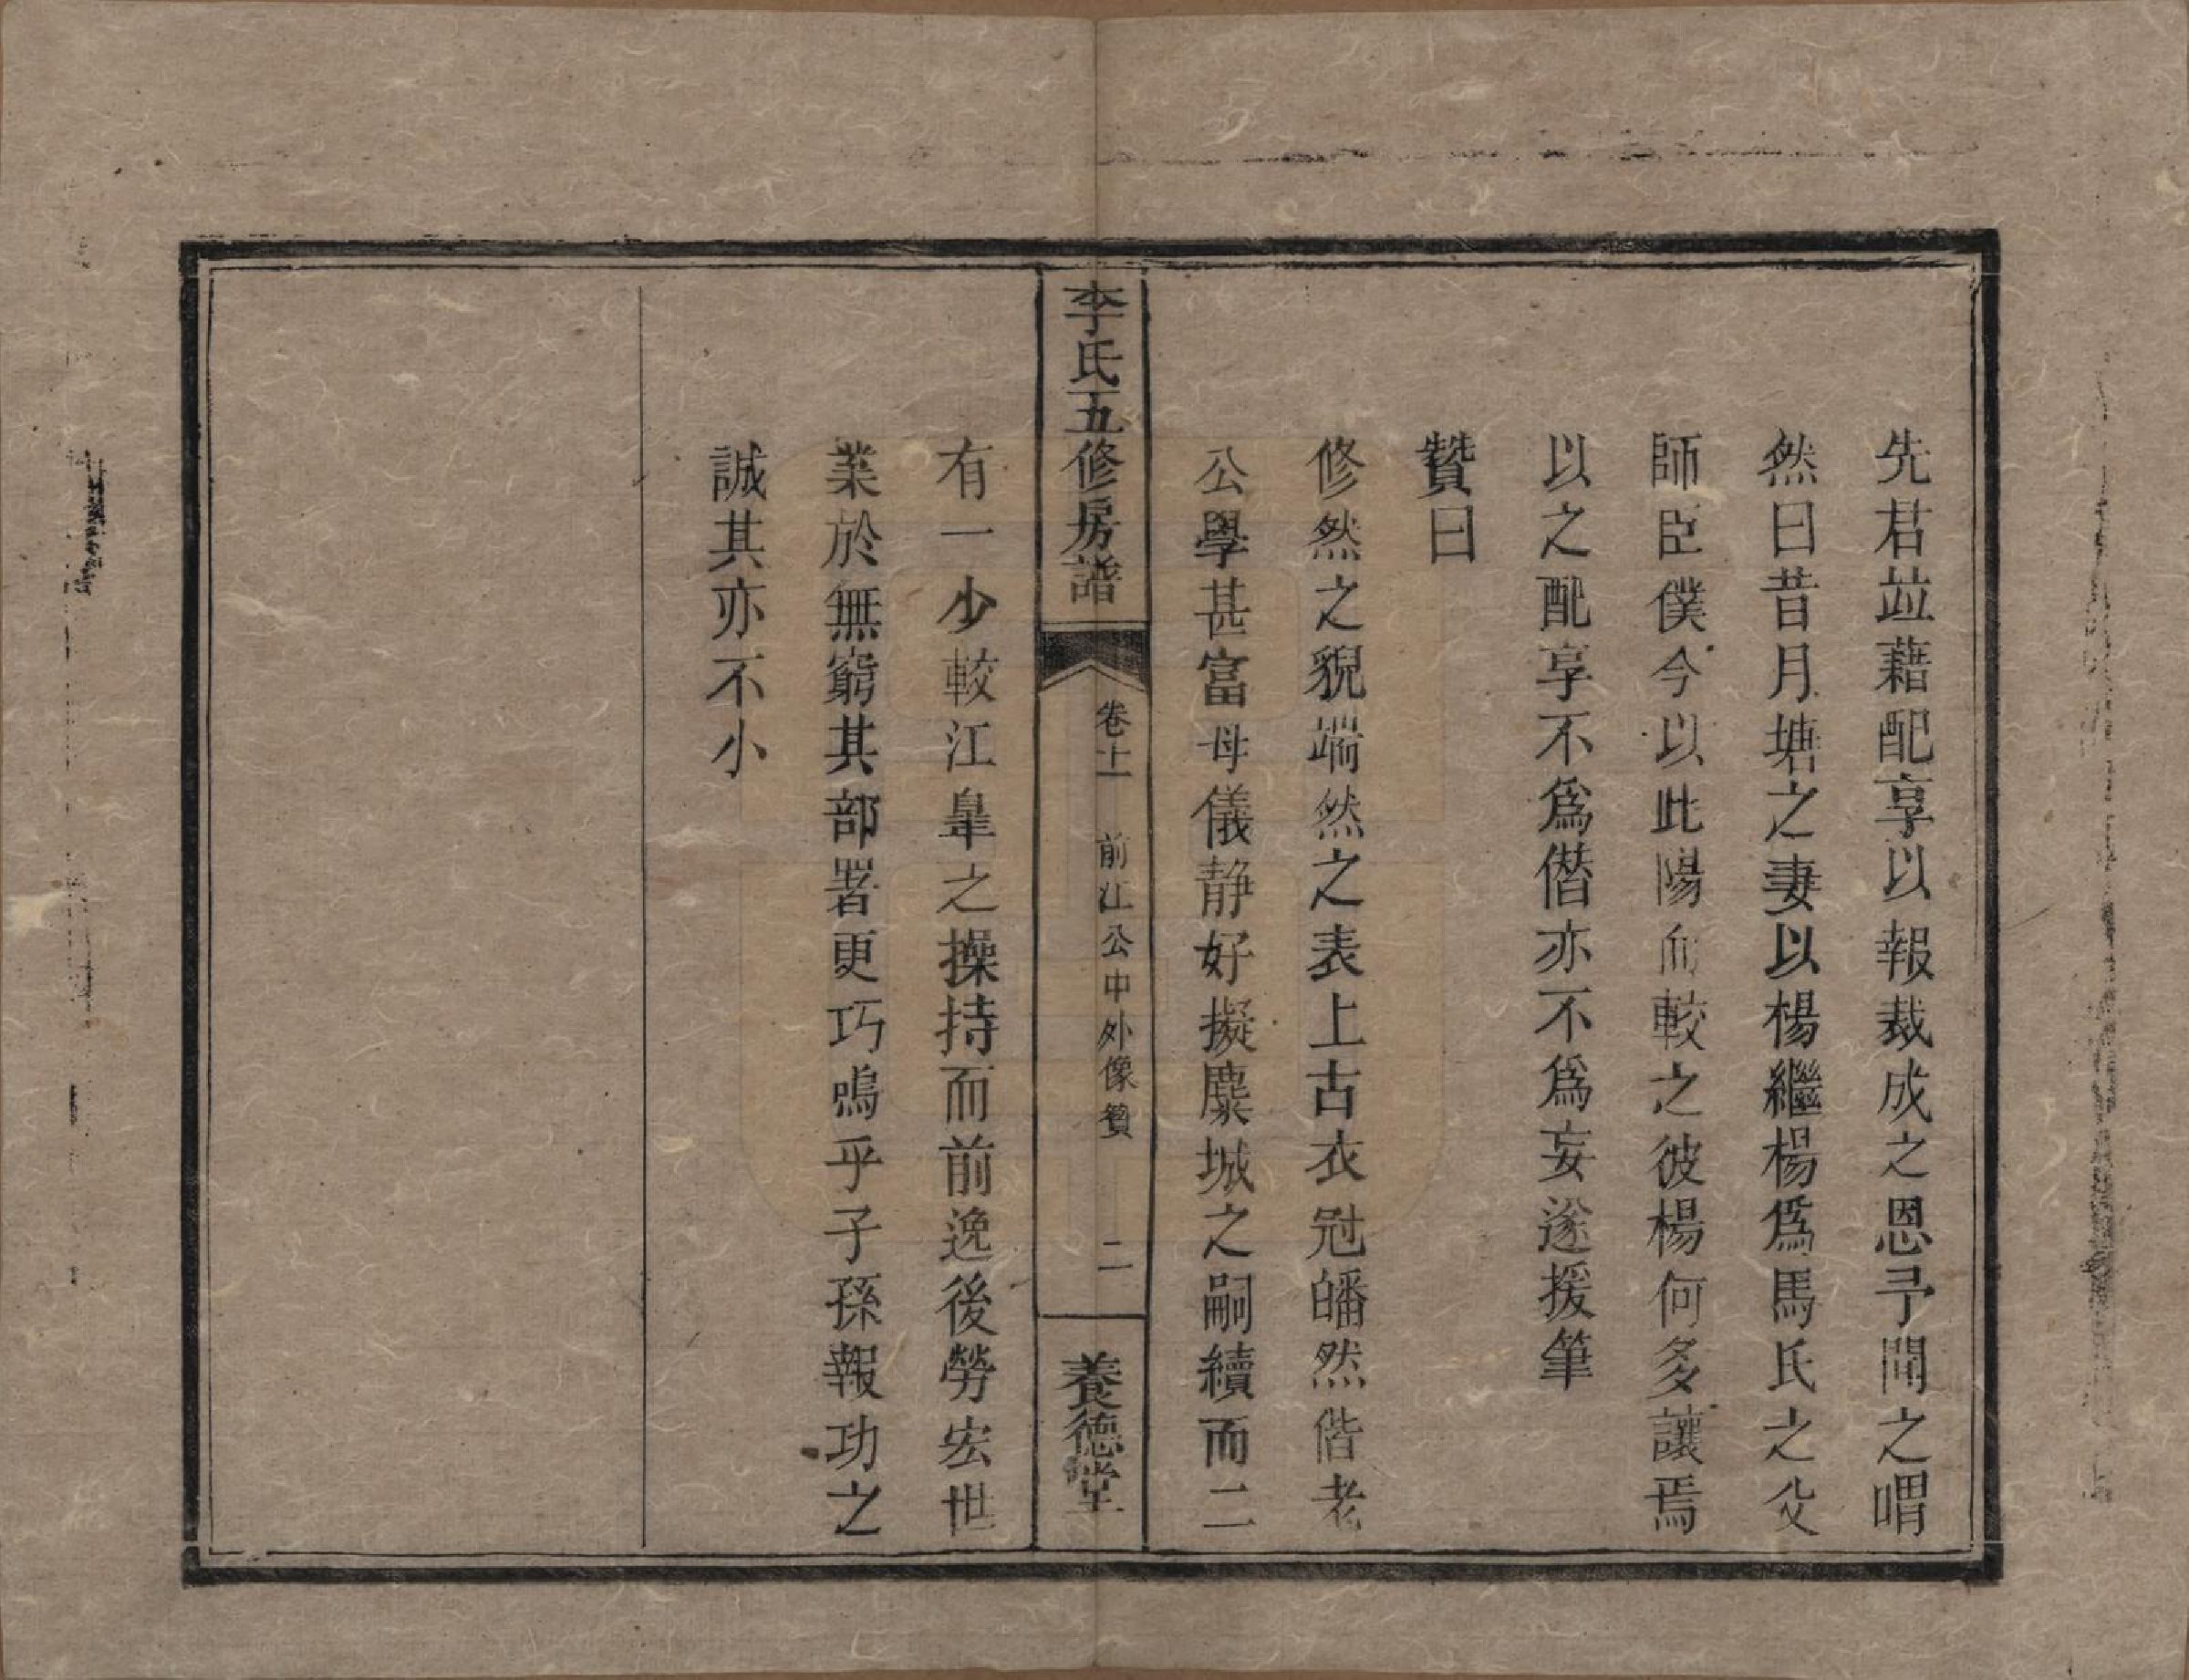 先君竝藉配享以報裁成之恩予聞之喟
然曰昔月塘之妻以楊繼楊爲馬氏之父
師臣僕今以此陽而較之彼楊何多讓焉
以之配享不爲僭亦不爲妄遂援筆
贊曰
修然之貌端然之表上古衣冠皤然偕老
公學甚富母儀静好擬麋城之嗣續而二
李氏五修房譜
卷十一 前江公中外像贊 二
養德堂
有一少較江臯之操持而前逸後勞宏世
業於無窮其部署更巧嗚乎子孫報功之
誠其亦不小